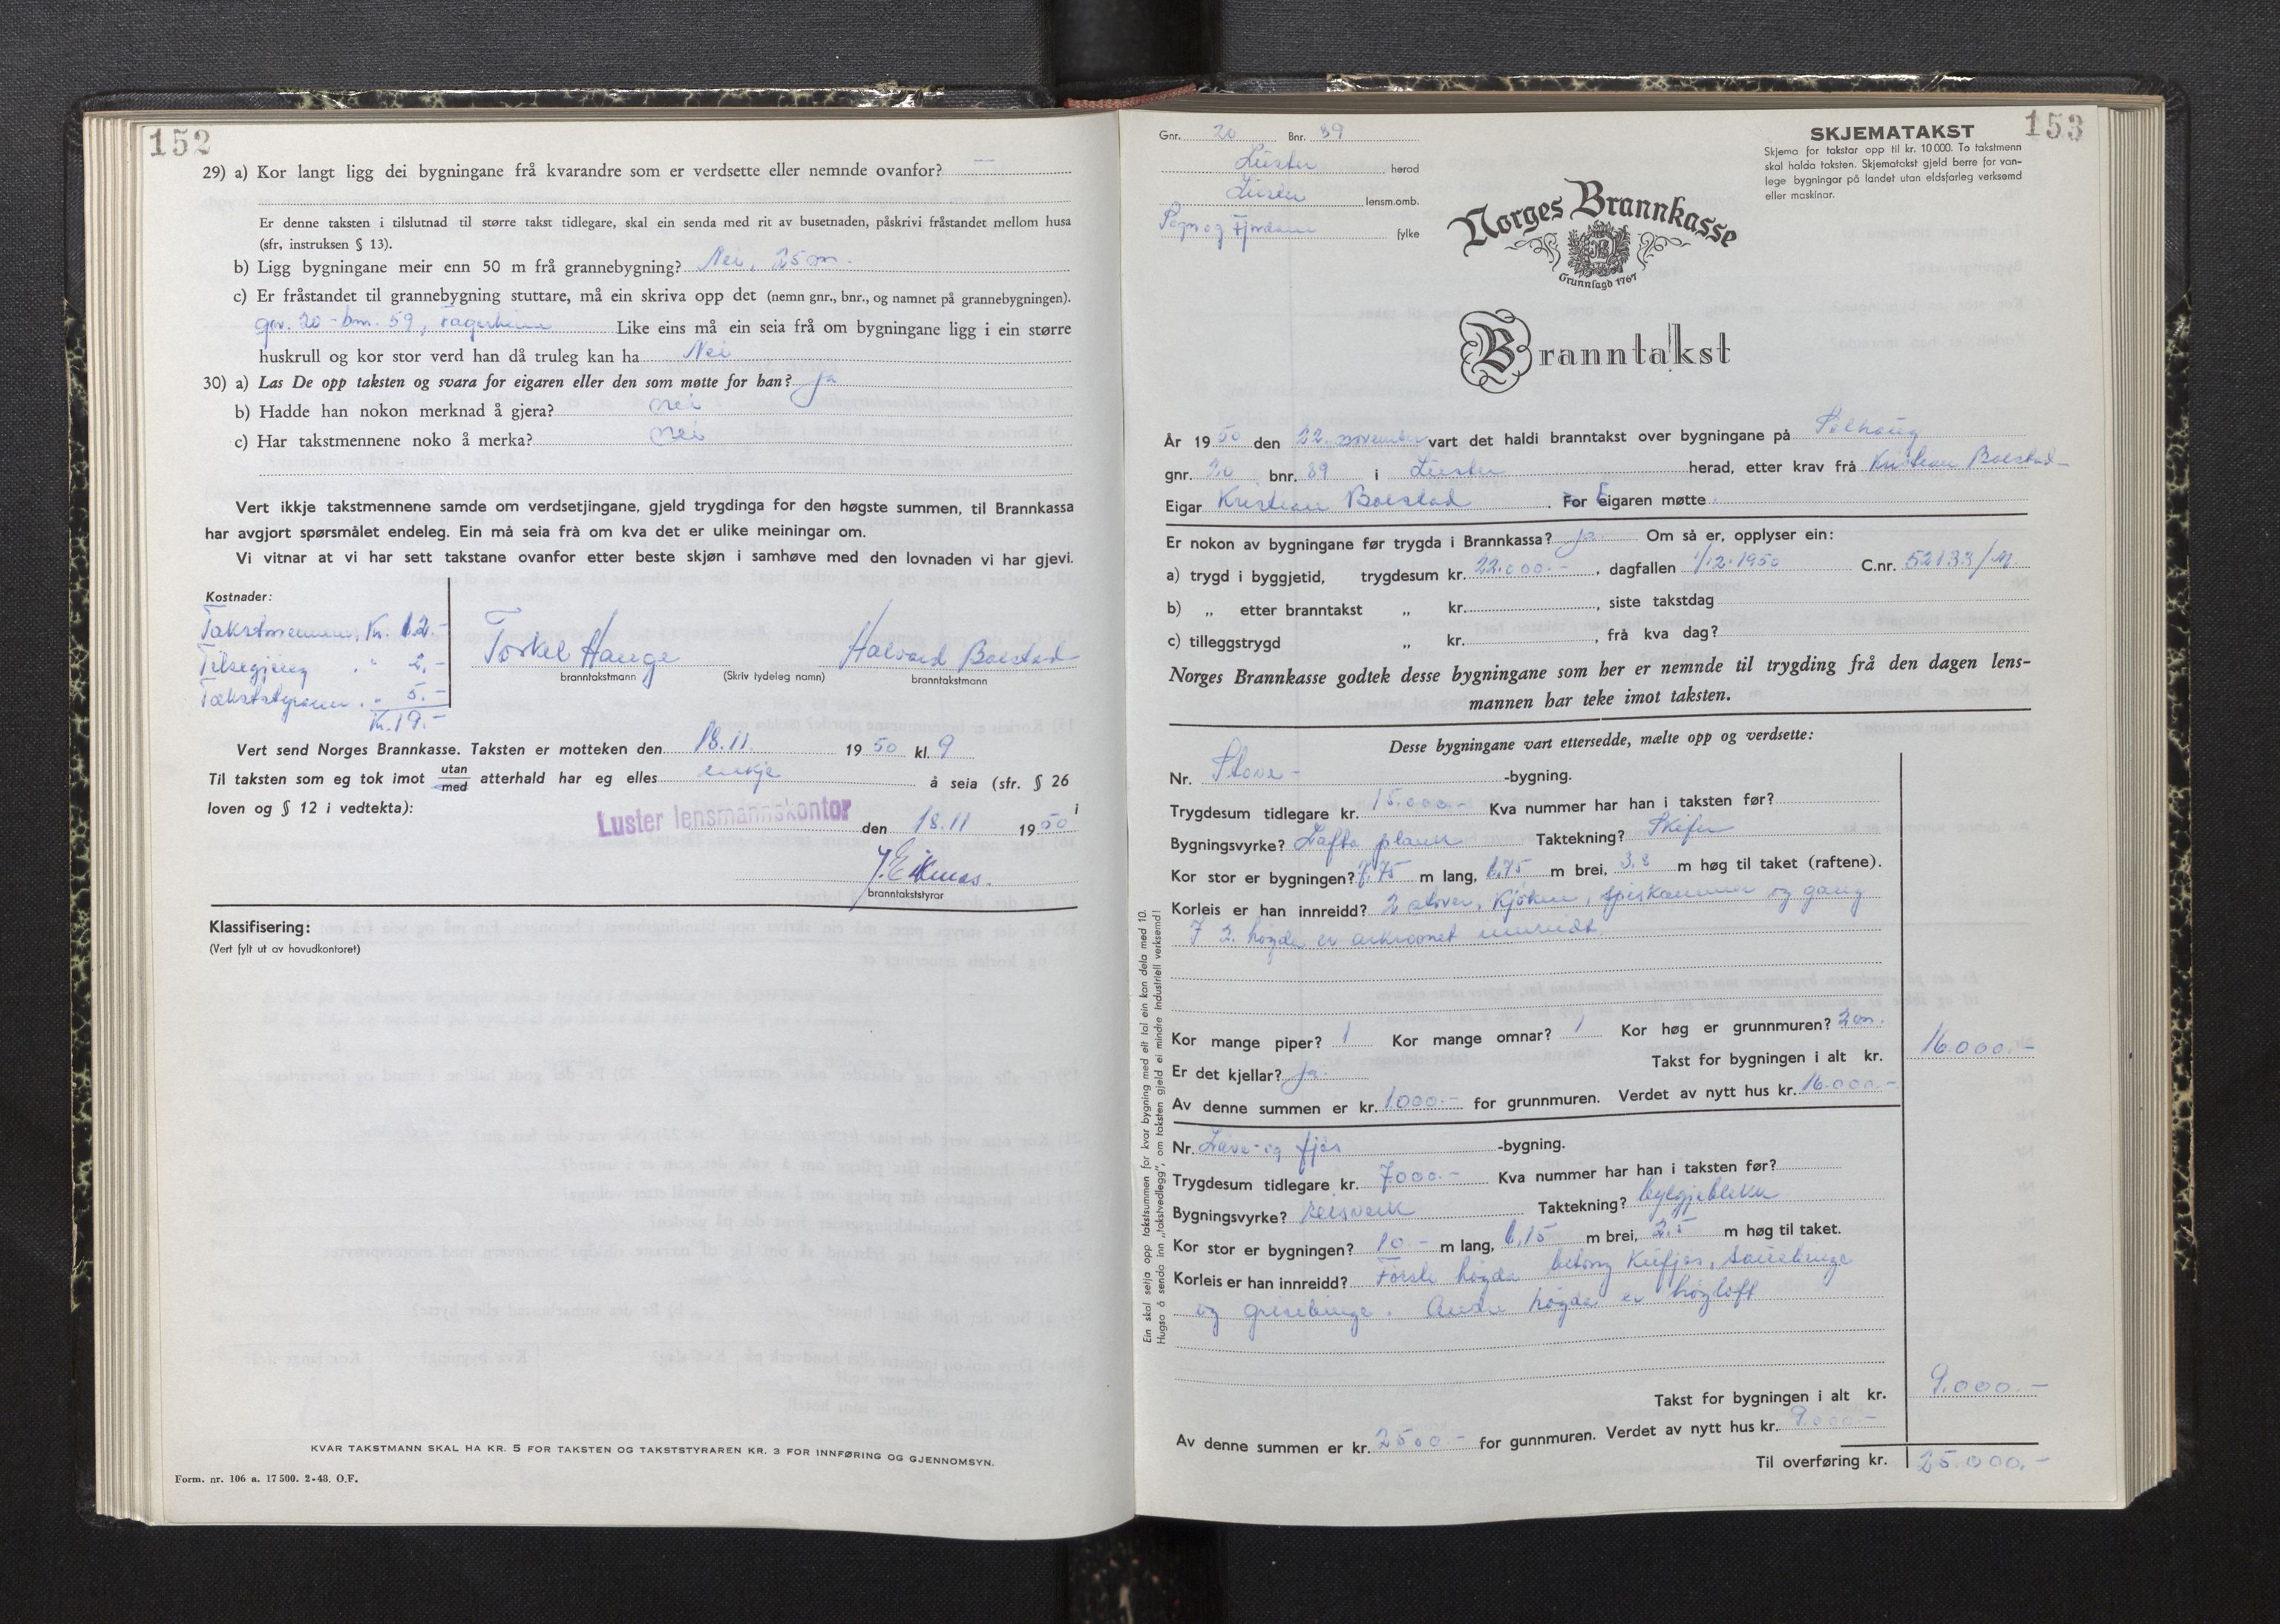 152
29) a) Kor langt ligg dei bygningane frå kvarandre som er verdsette eller nemnde ovanfor? —
Er denne taksten i tilslutnad til større takst tidlegare, skal ein senda med rit av busetnaden, påskrivi fråstandet mellom husa
(sfr, instruksen § 13).
b) Ligg bygningane meir enn 50 m frå grannebygning? Nei, 25 m.
c) Er fråstandet til grannebygning stuttare, må ein skriva opp det (nemn gnr., bnr., og namnet på grannebygningen).
gnr. 20 - bnr. 59, Fagerheim Like eins må ein seia frå om bygningane ligg i ein større
huskrull og kor stor verd han då truleg kan ha Nei
30) a) Las De opp taksten og svara for eigaren eller den som møtte for han? ja
b) Hadde han nokon merknad å gjera? nei
c) Har takstmennene noko å merka? nei
Vert ikkje takstmennene samde om verdsetjingane, gjeld trygdinga for den høgste summen, til Brannkassa
har avgjort spørsmålet endeleg. Ein må seia frå om kva det er ulike meiningar om.
Vi vitnar at vi har sett takstane ovanfor etter beste skjøn i samhøve med den lovnaden vi har gjevi.
Kostnader:
Takstmennene, Kr. 12.-
Tilsegjing " 2.-
Takststyraren " 5.-
Kr. 19.-
Torkel Hauge Halvard Bolstad
branntakstmann (Skriv tydeleg namn) branntakstmann
Vert send Norges Brannkasse. Taksten er motteken den 18.11. 1950 kl. 9
Til taksten som eg tok imot utan/med atterhald har eg elles inkje å seia (sfr. § 26
loven og § 12 i vedtekta):
Luster lensmannskontor den 18.11 1950 i
J. Eikenes.
branntakststyrar
Klassifisering:
(Vert fylt ut av hovudkontoret)
KVAR TAKSTMANN SKAL HA KR. 5 FOR TAKSTEN OG TAKSTSTYRAREN KR. 3 FOR INNFØRING OG GJENNOMSYN.
Form. nr. 106 a. 17500. 2-48. O.F.
153
Gnr. 20 Bnr. 89
Luster herad
Luster lensm.omb.
Sogn og Fjordane fylke
SKJEMATAKST
Skjema for takstar opp til kr. 10 000. To takstmenn
skal halda taksten. Skjematakst gjeld berre for van-
lege bygningar på landet utan eldsfarleg verksemd
eller maskinar.
Norges Brannkasse
Grunnlagd 1767
Branntakst
År 1950 den 22. november vart det haldi branntakst over bygningane på Solhaug
gnr. 20 bnr. 89 i Luster herad, etter krav frå Kristian Bolstad
Eigar Kristian Bolstad. For Eigaren møtte
Er nokon av bygningane før trygda i Brannkassa? ja. Om så er, opplyser ein:
a) trygd i byggjetid, trygdesum kr. 22.000.-, dagfallen 1/12.1950 C.nr. 52133/M
b) „ etter branntakst „ kr. , siste takstdag
c) tilleggstrygd „ kr. , frå kva dag?
Norges Brannkasse godtek desse bygningane som her er nemnde til trygding frå den dagen lens-
mannen har teke imot taksten.
Desse bygningane vart ettersedde, mælte opp og verdsette:
Nr. Stove- -bygning.
Trygdesum tidlegare kr. 15.000.- Kva nummer har han i taksten før?
Bygningsvyrke? Lafta plank Taktekning? Skifer
Kor stor er bygningen? 7.75 m lang, 6.75 m brei, 3.8 m høg til taket (raftene).
Korleis er han innreidd? 2 stover, Kjøken, spiskammer og gang
I 2. høgda er arkrommet innreidt.
Kor mange piper? 1 Kor mange omnar? 1 Kor høg er grunnmuren? 2 m.
Er det kjellar? ja. Takst for bygningen i alt kr. 16.000.-
Av denne summen er kr. 1000.- for grunnmuren. Verdet av nytt hus kr. 16.000.-
Nr. Løve- og fjøs -bygning.
Trygdesum tidlegare kr. 7000.- Kva nummer har han i taksten før?
Bygningsvyrke? Reisverk Taktekning? bylgjeblekk
Kor stor er bygningen? 10.- m lang, 6.15 m brei, 2.5 m høg til taket.
Korleis er han innreidd? Første høgda betong Kufjøs, sauebinge
og grisebinge. Andre høgda er høyloft
Takst for bygningen i alt kr. 9.000.-
Av denne summen er kr. 2500.- for gunnmuren. Verdet av nytt hus kr. 9.000.-
Til overføring kr. 25.000.-
Ein skal seia opp takstsummen for kvar bygning med eit tal ein kan dela med 10.
Hugso å senda inn „takstvedlegg", om taksten gjeld ei mindre industriell verksemd!